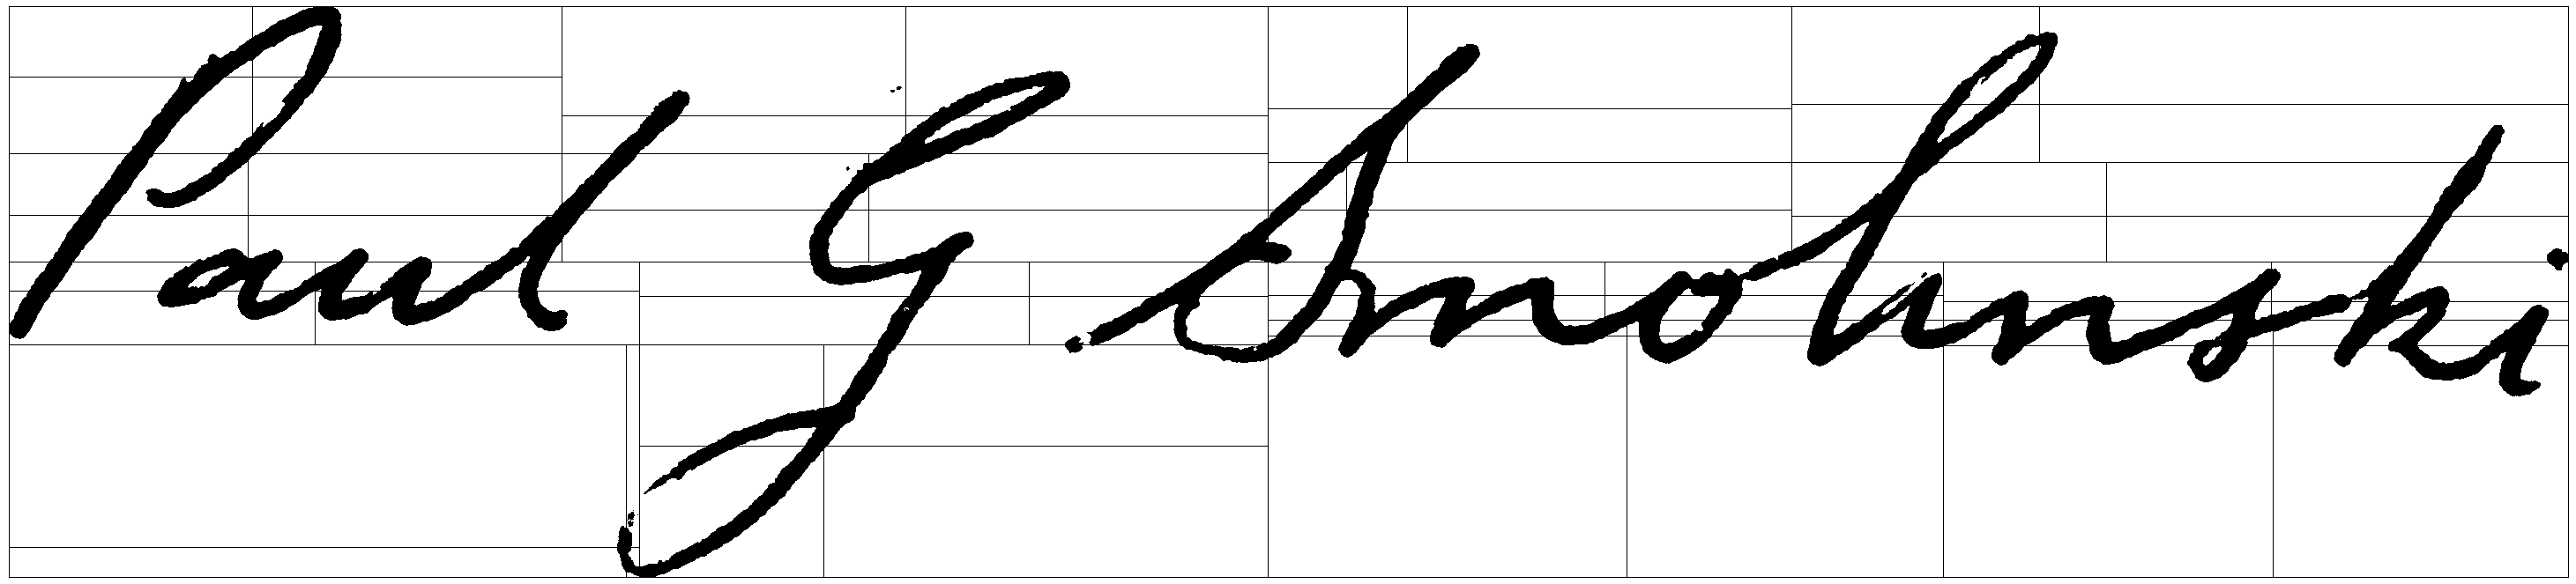 Paul G. Smolinski